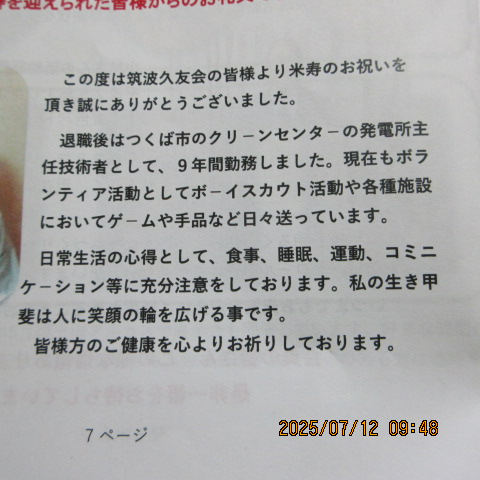 を迎えられた皆様からのお礼文
この度は筑波久友会の皆様より米寿のお祝いを
頂き誠にありがとうございました。
退職後はつくば市のクリーンセンターの発電所主
任技術者として、９年間勤務しました。現在もボラ
ンティア活動としてボーイスカウト活動や各種施設
においてゲームや手品など日々送っています。
日常生活の心得として、食事、睡眠、運動、コミニ
ケーション等に充分注意をしております。私の生き甲
斐は人に笑顔の輪を広げる事です。
皆様方のご健康を心よりお祈りしております。
7 ページ
2025/07/12 09:48